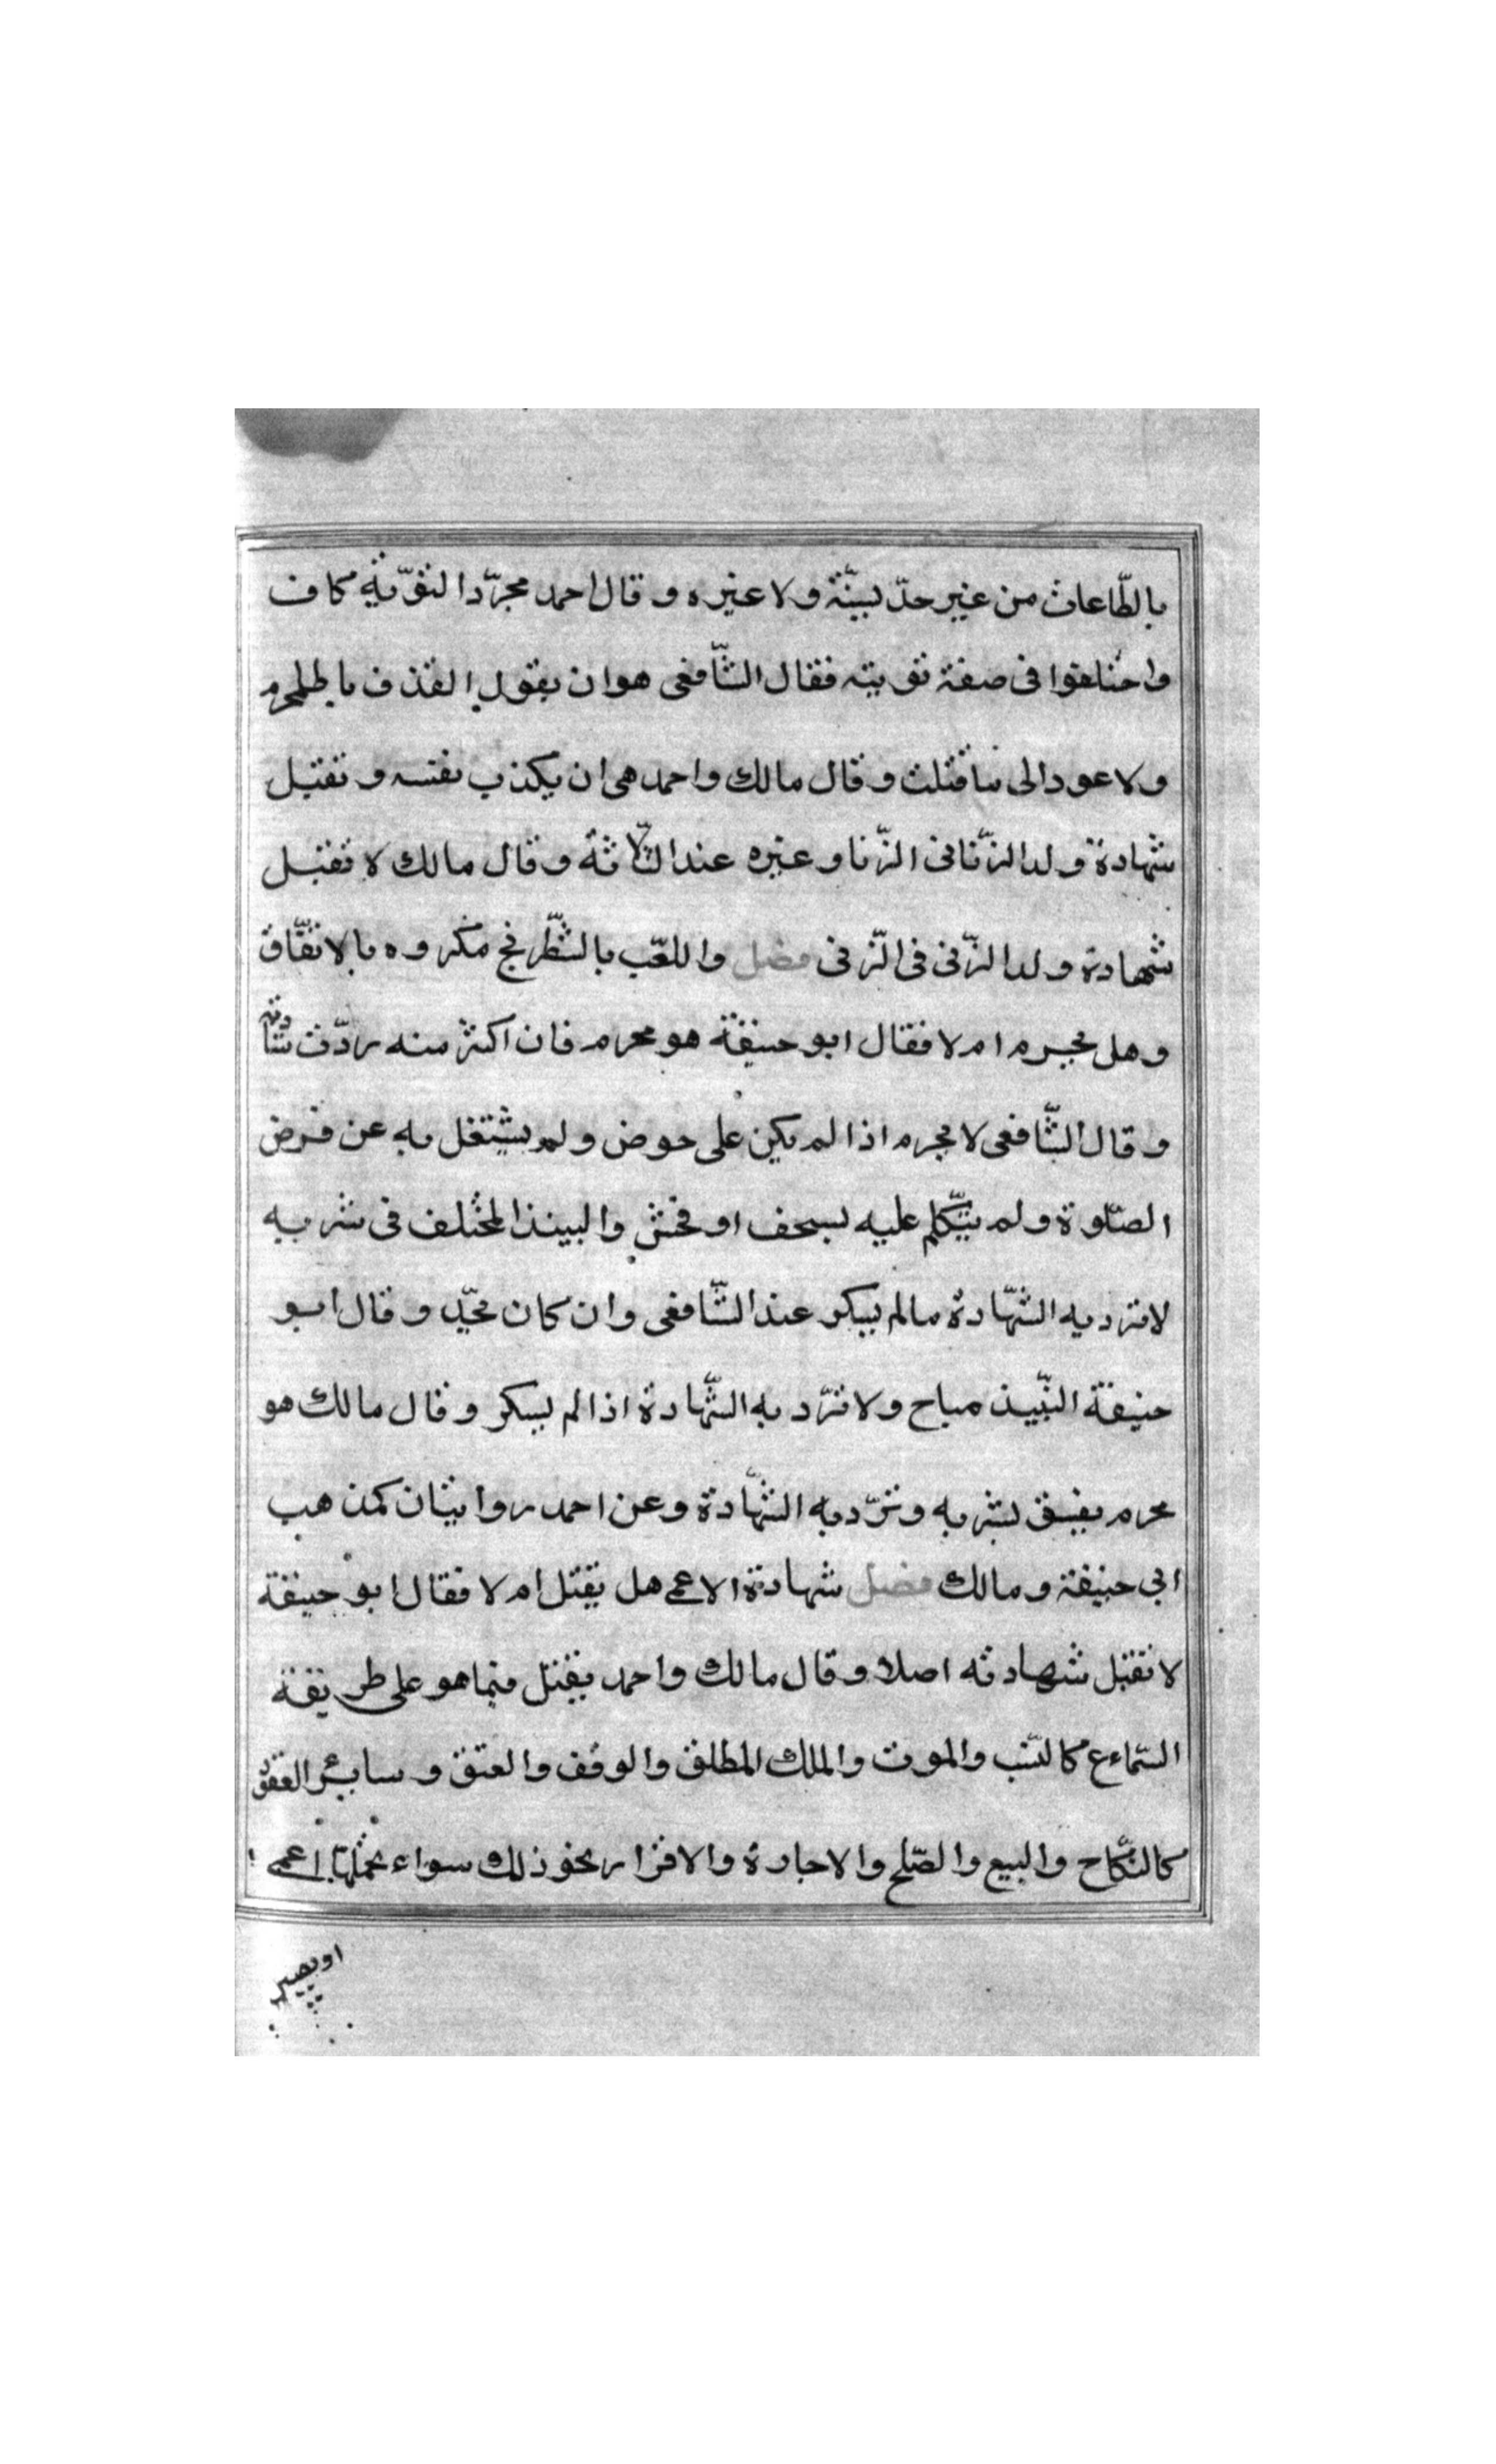 بالطّاعات من غير حدّ بسنّة ولا غيره و قال احمد مجرّد التوّبة كاف
واختلفوا فى صفة توبته فقال الشّافعى هو ان يقول القذف باطل محرم
ولا عود الى ما قلت و قال مالك واحمد هى ان يكذب نفسه و تقبل
شهادة ولد الزّنا فى الزّنا و غيره عند الثّلاثة و قال مالك لا تقبل
شهادة ولد الزّنى فى الزّنى فصل واللعّب بالشّطرنج مكروه بالاتفّاق
وهل يحرم ام لا فقال ابو حنيفة هو محرم فان اكثر منه ردّت شهادته
و قال الشّافعى لا يحرم اذا لم يكن على عوض ولم يشتغل به عن فرض
الصّلوة ولم يتكلّم عليه بسخف او فحش والنبيذ المختلف فى شربه
لا ترد به الشّهادة ما لم يسكر عند الشّافعى وان كان يحدّ و قال ابو
حنيفة النبّيذ مباح ولا ترّد به الشّهادة اذا لم يسكر و قال مالك هو
محرم يفسق بشربه وترّد به الشّهادة وعن احمد روايتان كمذهب
ابى حنيفة ومالك فصل شهادة الاعمى هل يقبل ام لا فقال ابو حنيفة
لا تقبل شهادته اصلا و قال مالك واحمد يقبل فيما هو على طريقة
السّماع كالنسّب والموت والملك المطلق والوقف والعتق و سائر العقود
كالنّكاح والبيع والصّلح والاجارة والاقرار ونحو ذلك سواء تحملها اعمى
او بصير